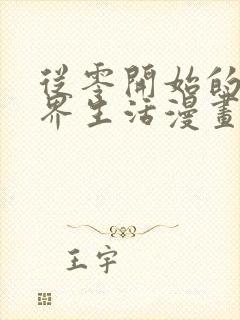 從零開始的
界生活漫畫
王宇